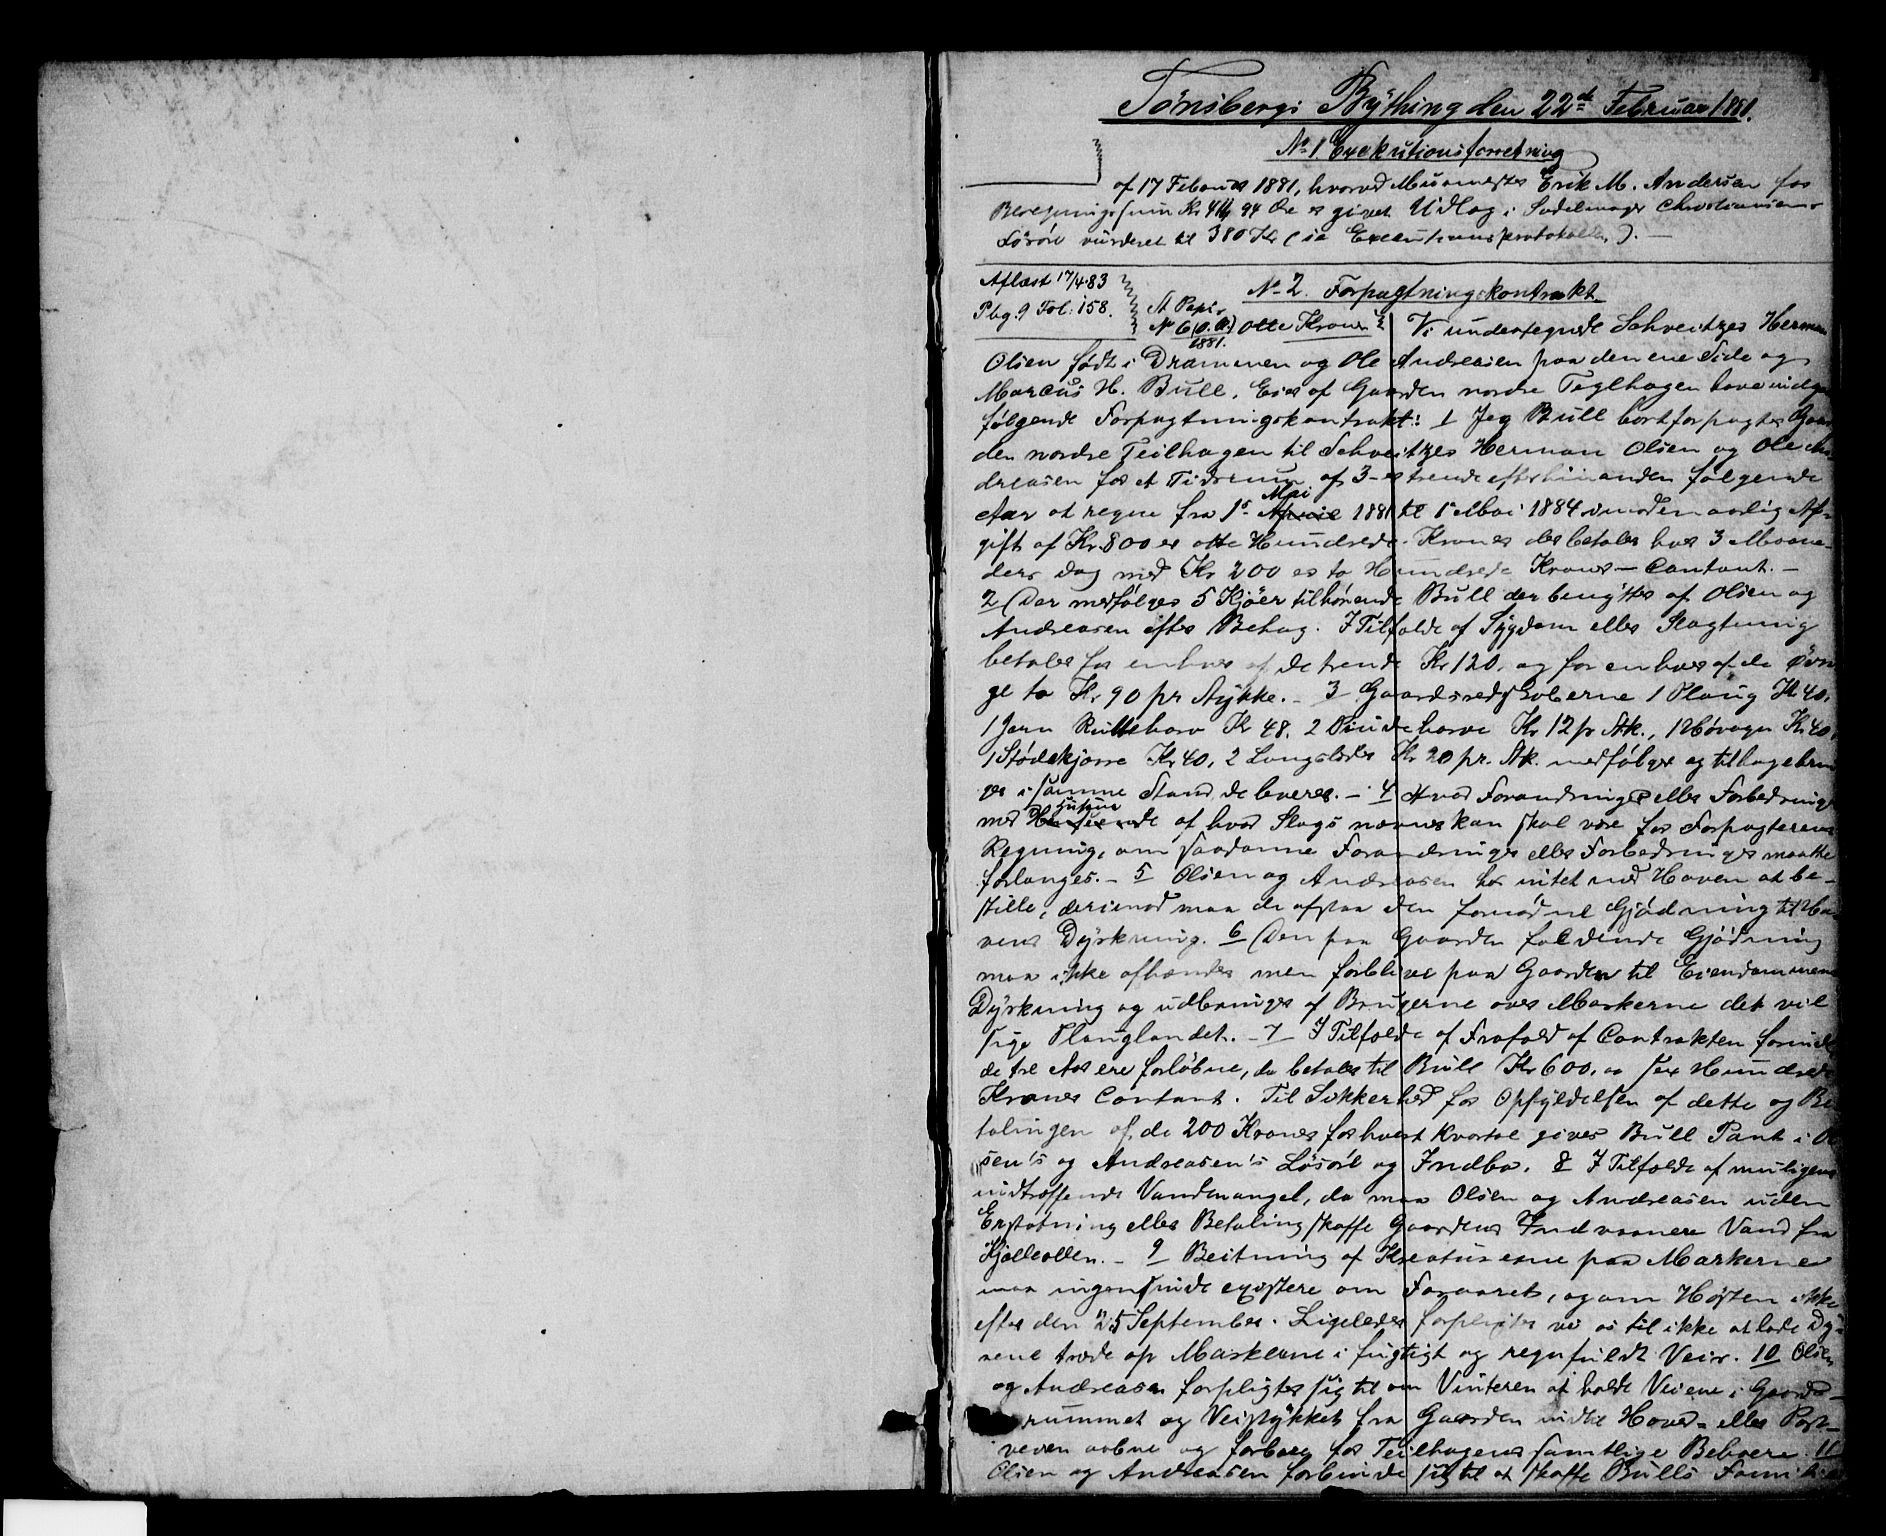 Tønsbergs Bything den 22de Februar 1881.
No 1. Exekutionsforretning
af 17 Februar 1881, hvorved Muurmester Erik M. Andersen for
Beregningssum Kr. 94 Øre er givet Udlæg i Sadelmager Christiansens
Løsøre vurderet til 380 Kr (se Executionsprotokollen). —
Aflæst 17/4 83
Pbg. 9 Fol. 158.
No 2. Forpagtningskontrakt
St. Papir
No 6 (0.8) Otte Kroner
1881.
Vi undertegnede Schveitzer Herman
Olsen født i Drammen og Ole Andreasen paa den ene Side og
Marcus H. Bull, Eier af Gaarden nordre Teglhagen have indgaaet
følgende Forpagtningskontrakt: 1 Jeg Bull bortforpagter Gaar-
den nordre Teilhagen til Schveitzer Herman Olsen og Ole An-
dreasen for et Tidsrum af 3 - er trende efter hinanden følgende
Aar at regne fra 1ste April Mai 1881 til 1ste Mai 1884 mod en aarlig Af-
gift af Kr. 800 er otte Hundrede Kroner der betales hver 3 Maane-
ders Dag med Kr 200 er to Hundrede Kroner — Contant. —
2 Der medfølger 5 Kjøer tilhørende Bull der benyttes af Olsen og
Andreasen efter Behag. I Tilfælde af Sygdom eller Slagtning
betales for enhver af de trende Kr 120, og for enhver af de øvri-
ge to Kr. 90 pr Stykke. — 3 Gaardsredskaberne 1 Ploug Kr 40,
1 Jern Rulleharv Kr 48. 2 harve Kr 12 pr Stk., 1 Høvogn Kr 40,
1 Stødekjærre Kr 40, 2 Langslæder Kr 20 pr. Stk. medfølger og tilbagebrin-
ges i samme Stand de leveres. — 4 Hvad Forandringer eller Forbedringer
med Husene af hvad Slags nævnes kan skal være for Forpagterens
Regning, om saadanne Forandringer eller Forbedringer maatte
forlanges. — 5 Olsen og Andreasen har intet med Haven at be-
stille, derimod maa de afstaa den fornødne Gjødning til Ha-
vens Dyrkning. 6 Den paa Gaarden faldende Gjødning
maa ikke afhændes men forblive paa Gaarden til Eiendommens
Dyrkning og udbringes af Brugerne over Markerne det vil
sige Plouglandet. — 7 I Tilfælde af Frafald af Contrakten forinden
de tre Aar ere forløbne, da betales til Bull Kr 600, er sex Hundrede
Kroner Contant. Til Sikkerhed for Opfyldelsen af dette og Be-
talingen af de 200 Kroner for hvert Kvartal gives Bull Pant i Ol-
sen's og Andreasen's Løsøre og Indbo. 8 I Tilfælde af muligens
indtræffende Vandmangel, da maa Olsen og Andreasen uden
Erstatning eller Betaling skaffe Gaardens Indvaanere Vand fra
Kjælleolden. — 9 Beitning af Kreaturerne paa Markerne
maa ingensinde existere om Foraaret, og om Høsten ikke
efter den 25 September. Ligeledes forpligter vi os til ikke at lade Dy-
rene træde op Markerne i fugtigt og regnfuldt Veir. 10 Olsen
og Andreasen forpligter sig til om Vinteren at holde Veiene i Gaards-
rummet og Veistykket fra Gaarden ind til Hoved- eller Post-
veien aabne og farbare for Teilhagens samtlige Beboere. 11
Olsen og Andreasen forbinde sig til at skaffe Bulls Fami